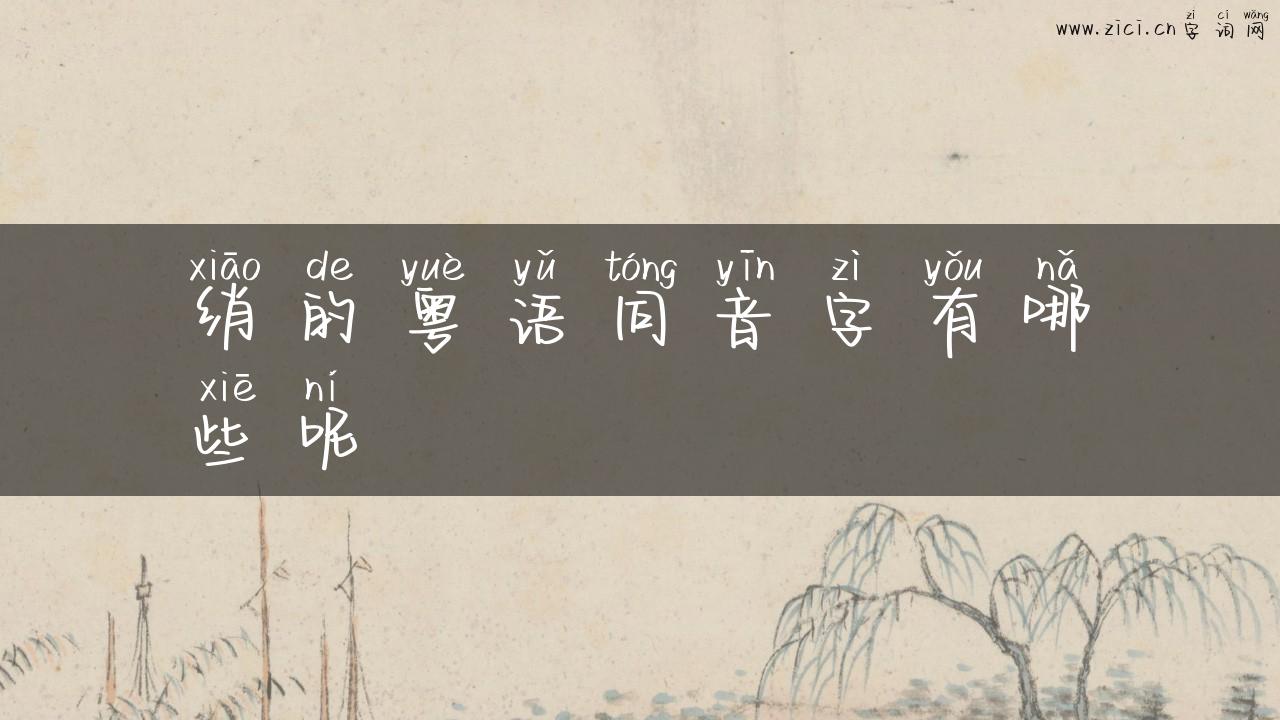 zì cí wǎng
www.zici.cn 字词网
xiāo de yuè yǔ tóng yīn zì yǒu nǎ
绡的粤语同音字有哪
xiē ní
些呢